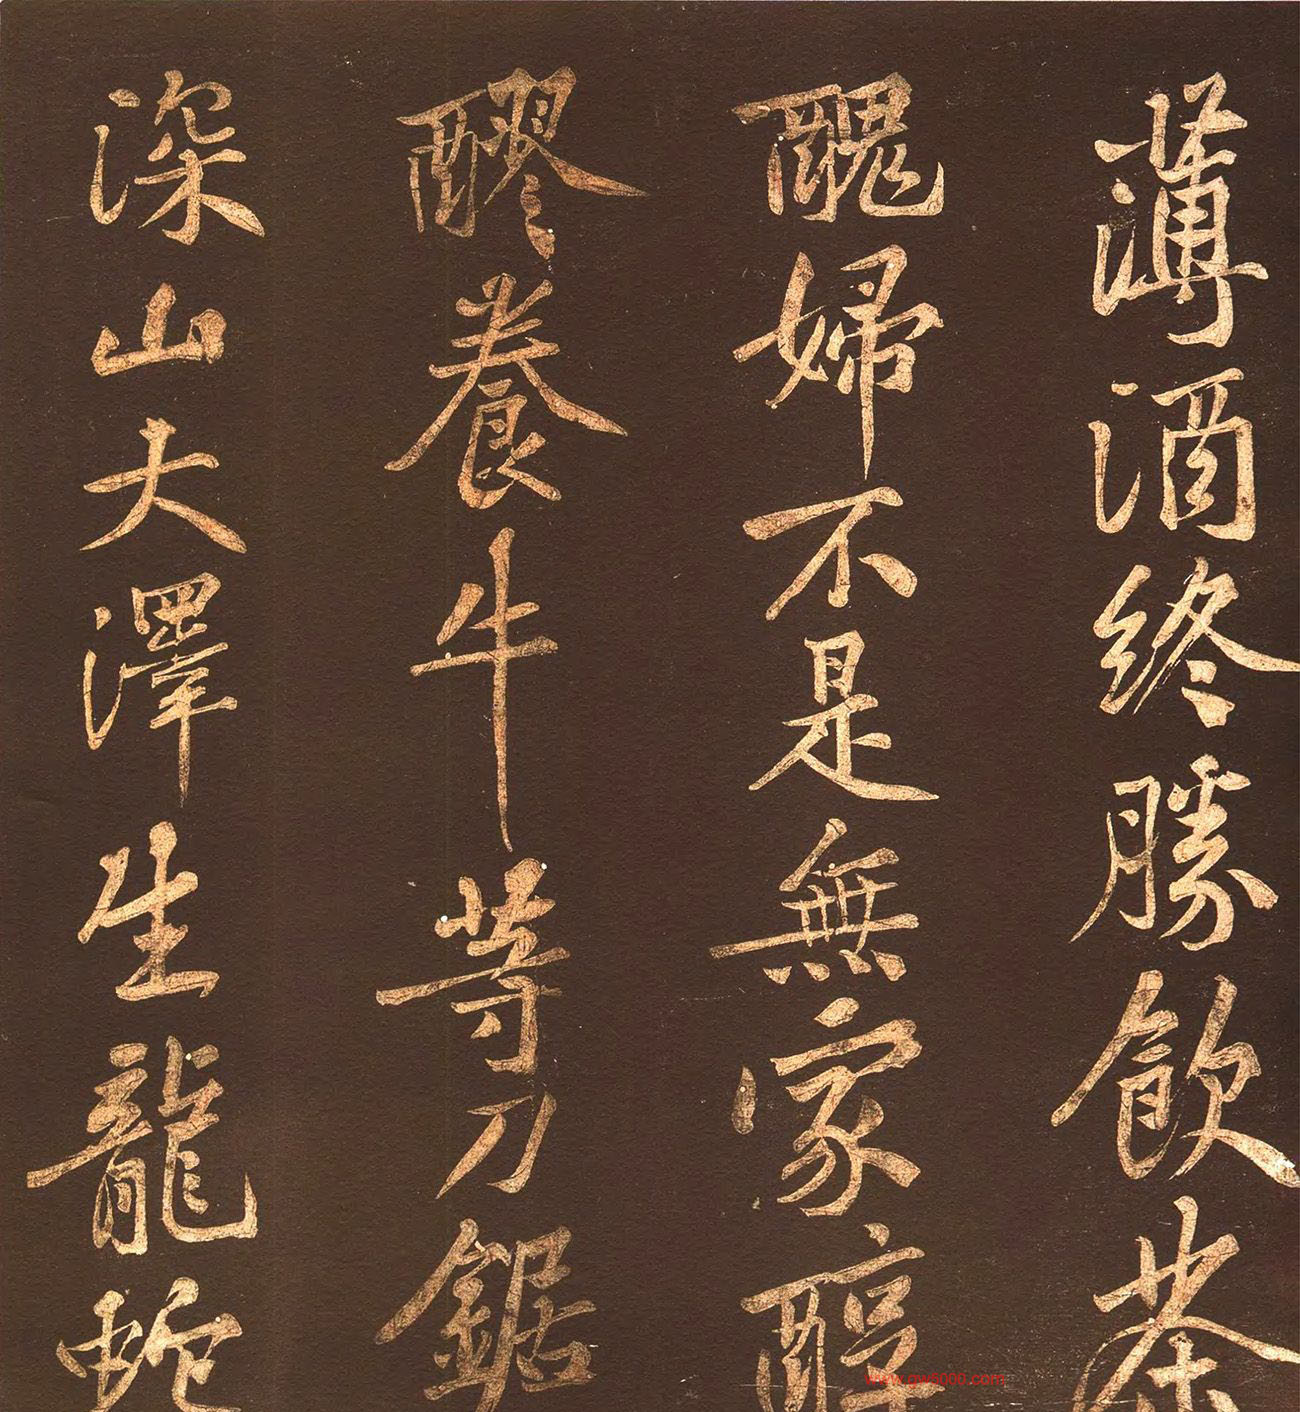 薄酒終勝飲茶
醜婦不是無家醇
醪養牛等刀鋸
深山大澤生龍蛇
www.gw5000.com